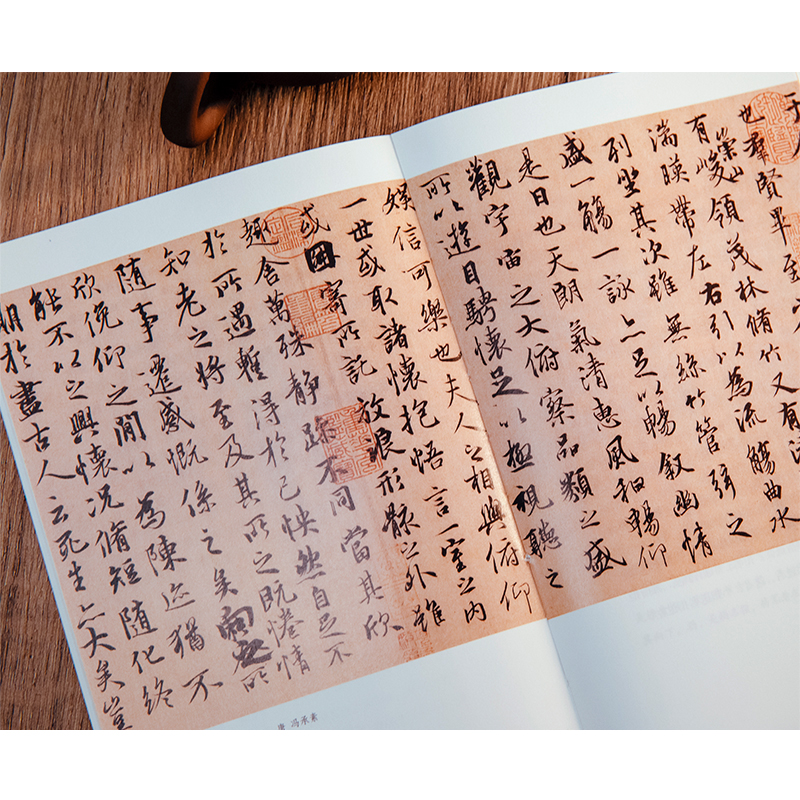 也羣賢畢至
有崇山峻領茂林脩竹又有
湍暎帶左右引以為流觴曲水
列坐其次雖無絲竹管弦之
盛一觴一詠亦足以暢敘幽情
是日也天朗氣清惠風和暢仰
觀宇宙之大俯察品類之盛
所以遊目騁懷足以極視聽之
娛信可樂也夫人之相與俯仰
一世或取諸懷抱悟言一室之內
或因寄所託放浪形骸之外雖
趣舍萬殊靜躁不同當其欣
於所遇暫得於己快然自足不
知老之將至及其所之既惓情
隨事遷感慨係之矣向之所
欣俛仰之閒以為陳迹猶不
能不以之興懷況脩短隨化終
期於盡古人云死生亦大矣豈
唐 冯承素